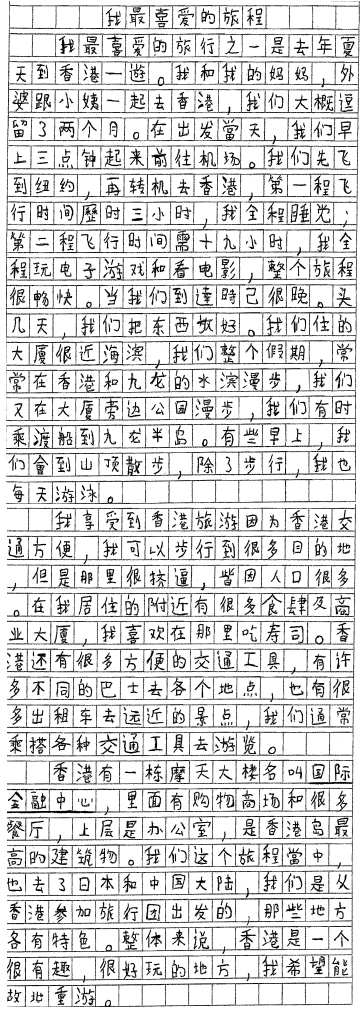 我最喜爱的旅程
我最喜爱的旅行之一是去年夏
天到香港一遊。我和我的妈妈,外
婆跟小姨一起去香港,我们大概逗
留了两个月。在出发當天,我们早
上三点钟起来前往机场。我们先飞
到纽约,再转机去香港,第一程飞
行时间歷时三小时,我全程睡觉;
第二程飞行时间需十九小时,我全
程玩电子游戏和看电影,整个旅程
很畅快。当我们到達時已很晚。头
几天,我们把东西放好。我们住的
大厦很近海滨,我们整个假期,常
常在香港和九龙的水滨漫步,我们
又在大厦旁边公园漫步,我们有时
乘渡船到九龙半岛。有些早上,我
们會到山顶散步,除了步行,我也
每天游泳。
我享受到香港旅游因为香港交
通方便,我可以步行到很多目的地
,但是那里很挤逼,皆因人口很多
。在我居住的附近有很多食肆及商
业大厦,我喜欢在那里吃寿司。香
港还有很多方便的交通工具,有许
多不同的巴士去各个地点,也有很
多出租车去远近的景点,我们通常
乘搭各种交通工具去游览。
香港有一栋摩天大楼名叫国际
金融中心,里面有购物商场和很多
餐厅,上层是办公室,是香港岛最
高的建筑物。我们这个旅程當中,
也去了日本和中国大陆,我们是从
香港参加旅行团出发的,那些地方
各有特色。整体来说,香港是一个
很有趣,很好玩的地方,我希望能
故地重游。